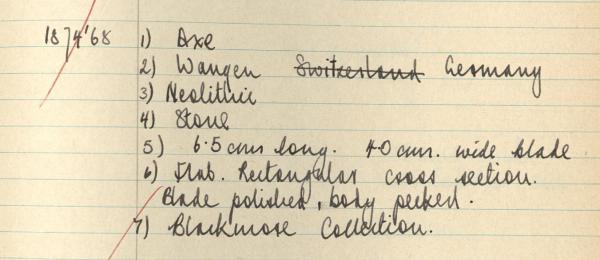 1874'68 1) Axe
2) Wangen ~~Switzerland~~ Germany
3) Neolithic
4) Stone
5) 6.5 cms long. 4.0 cm. wide blade
6) Slab. Rectangular cross section.
Blade polished, body pecked.
7) Blackmore Collection.